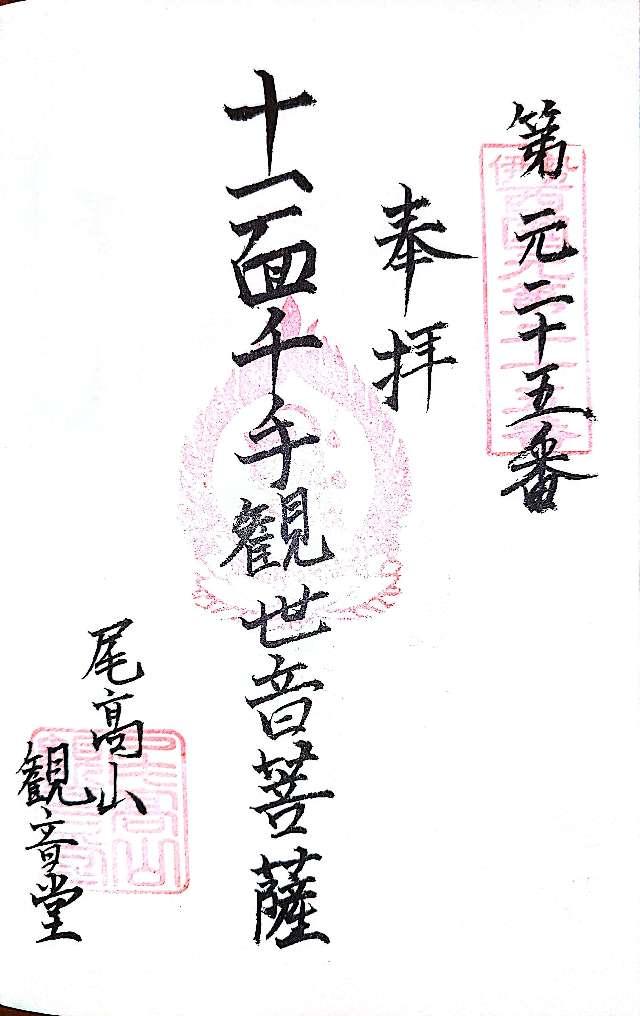 第元二十五番
奉拝
十一面千手観世音菩薩
尾高山
観音堂